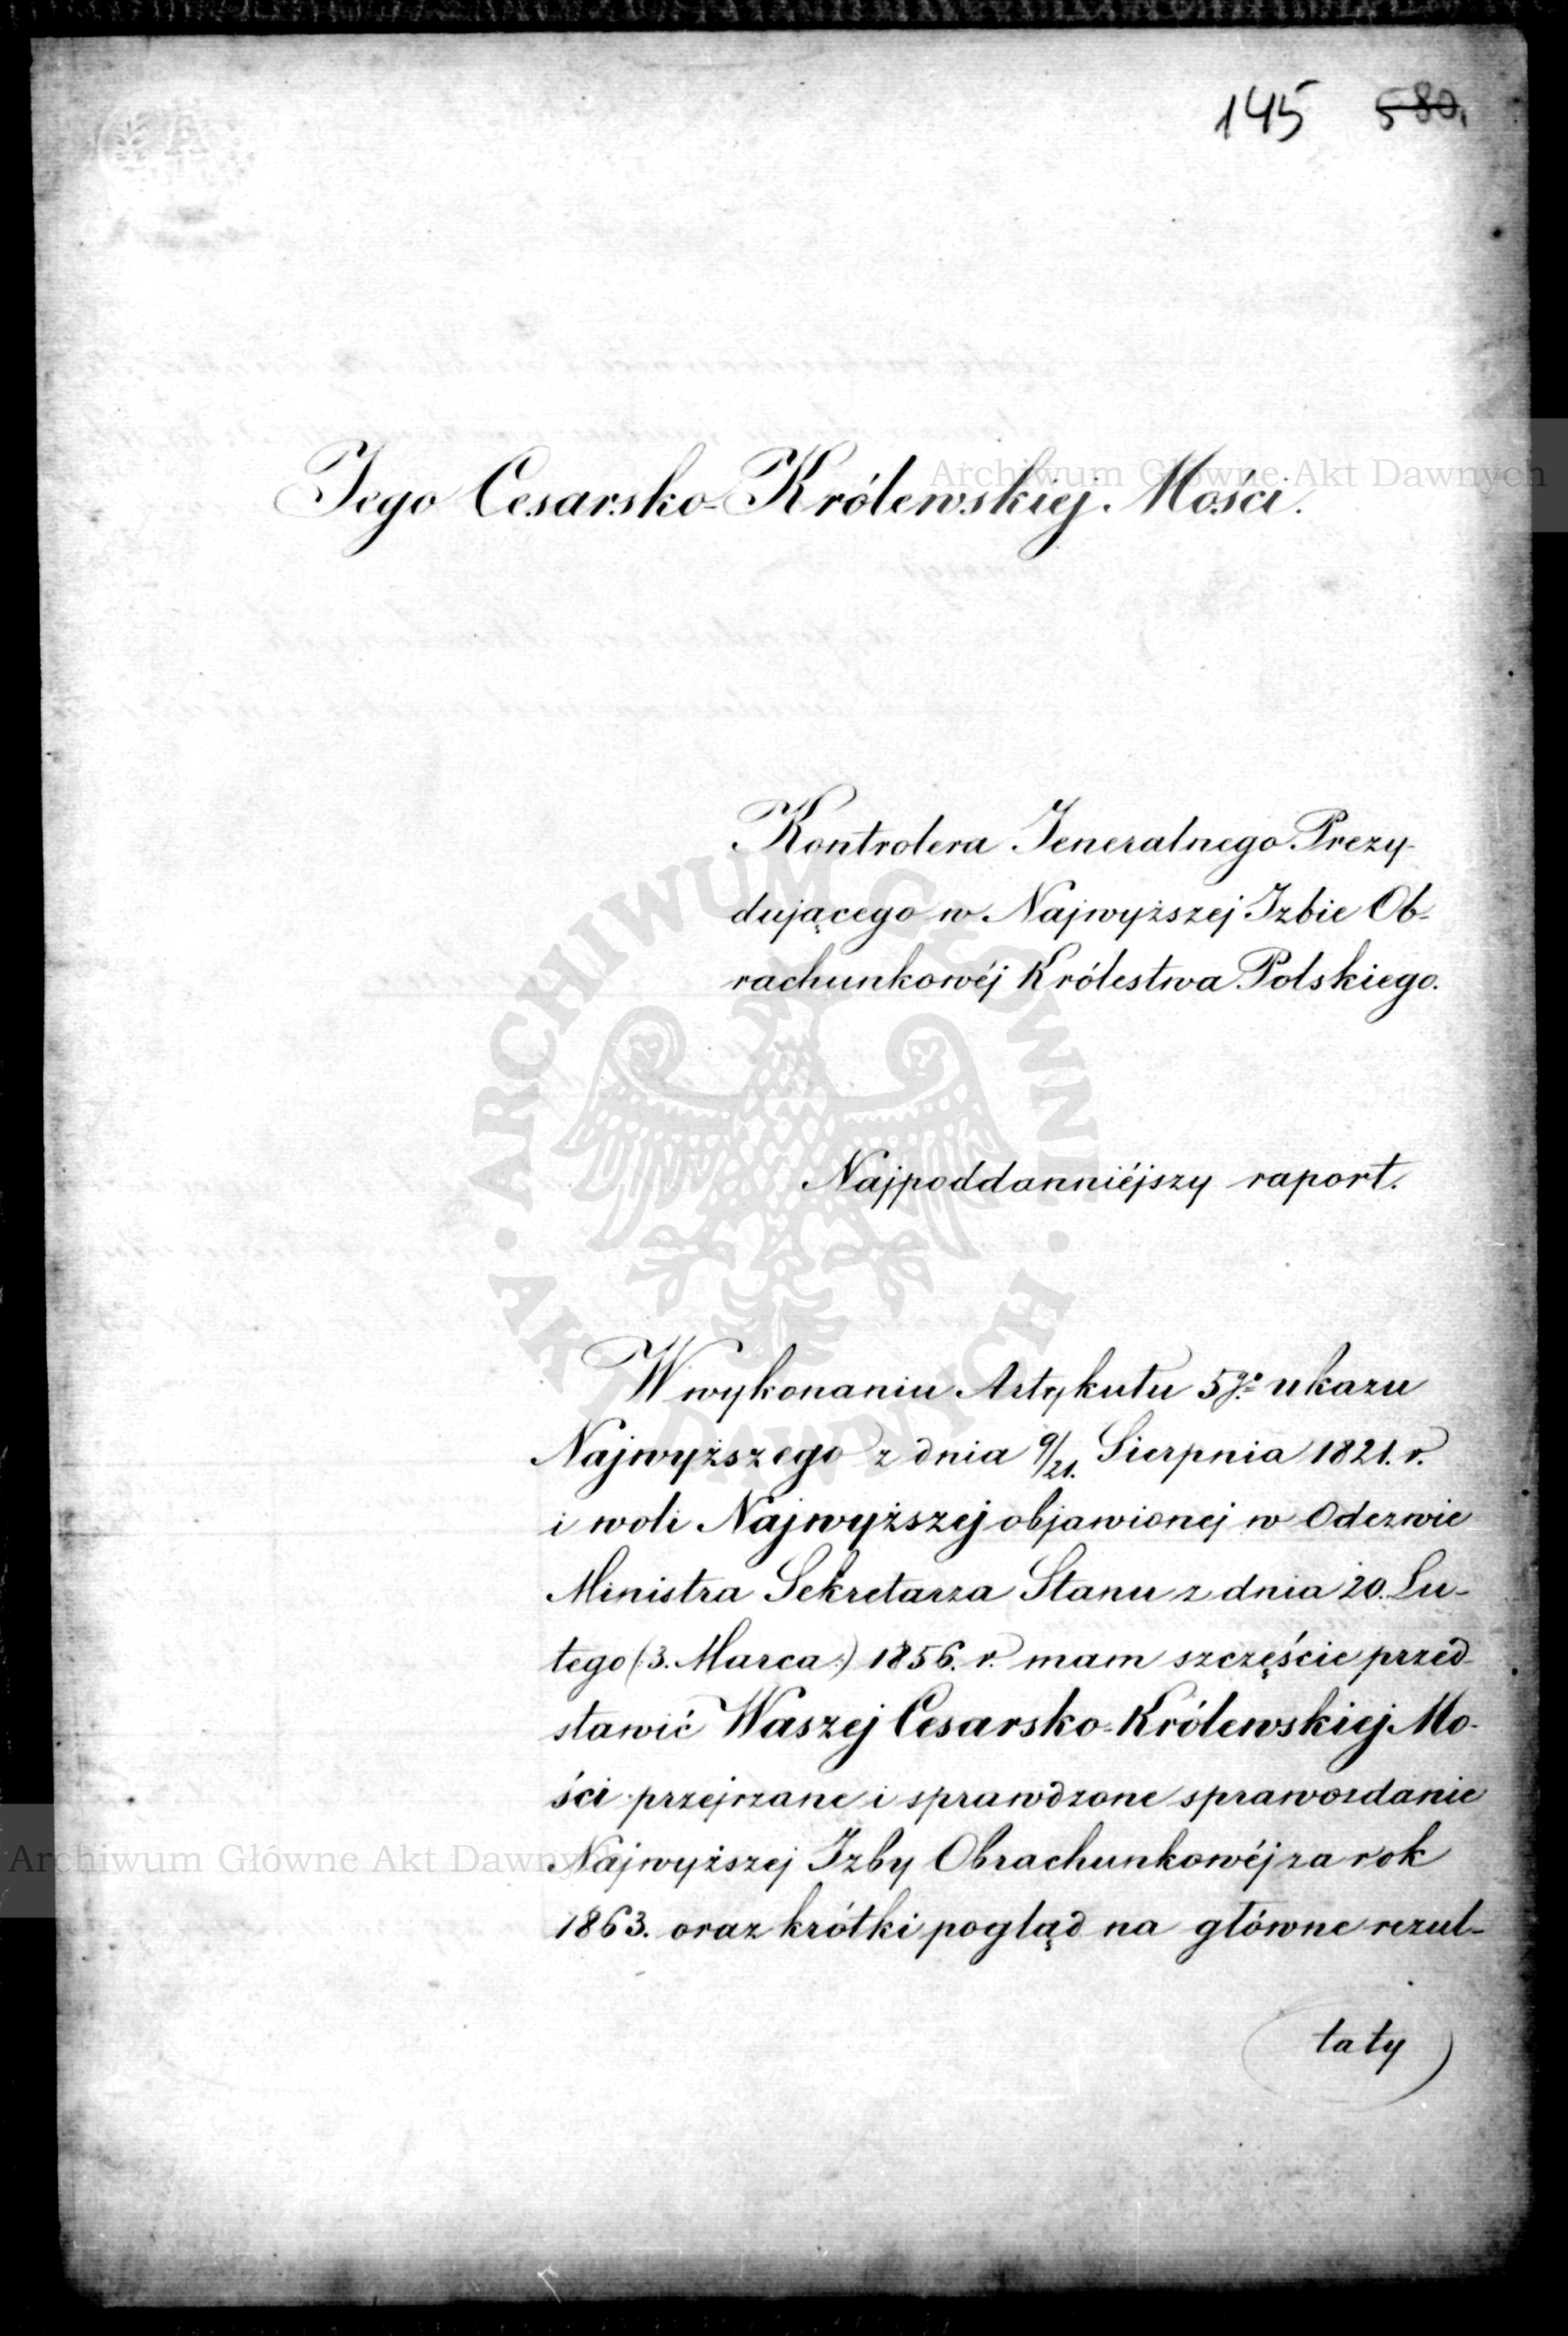 145 580.
Jego Cesarsko-Królewskiej Mości.
Kontrolera Jeneralnego Prezy-
dującego w Najwyższej Izbie Ob-
rachunkowéj Królestwa Polskiego.
Najpoddanniéjszy raport.
W wykonaniu Artykułu 5go ukazu
Najwyższego z dnia 9/21. Sierpnia 1821. r.
i woli Najwyższej objawionej w Odezwie
Ministra Sekretarza Stanu z dnia 20. Lu-
tego (:3. Marca:) 1856. r. mam szczęście przed
stawić Waszej Cesarsko-Królewskiej Mo-
ści przejrzane i sprawdzone sprawozdanie
Najwyższej Izby Obrachunkowéj za rok
1863. oraz krótki pogląd na główne rezul-
taty
Archiwum Główne Akt Dawnych
Archiwum Główne Akt Dawnych
ARCHIWUM GŁÓWNE · AKT DAWNYCH ·